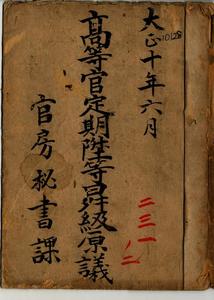 大正十年六月
10128
高等官定期陞等昇級原議
官房秘書課
二三一ノ二